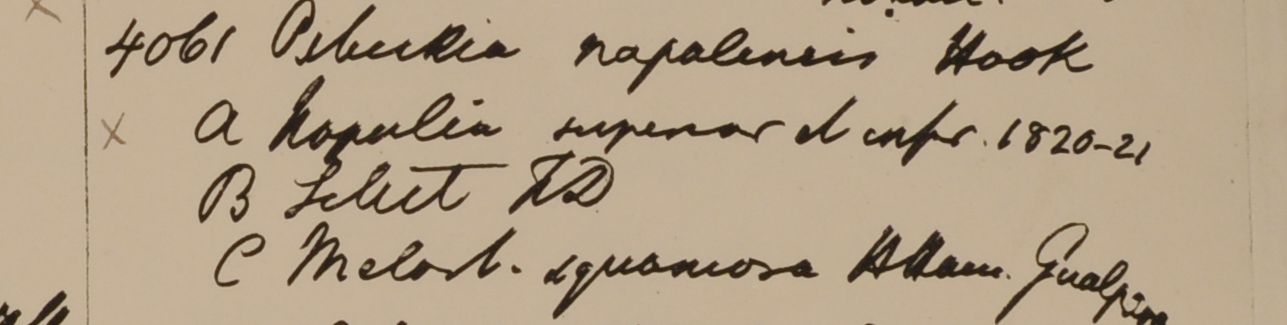 4061 Osbeckia napalensis Hook
A Napalia superior et infr. 1820-21
B Silhet FD
C Melast. squamosa HHam. Gualpara